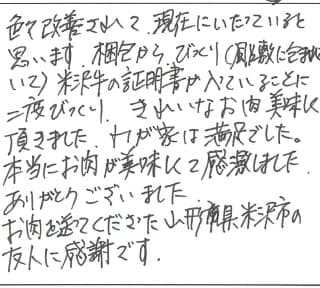 色々改善されて、現在にいたっていると
思います。梱包から、びっくり(風呂敷に包まれ
いて)米沢牛の証明書が入っていることに
二度びっくり、きれいなお肉美味しく
頂きました。わが家は満足でした。
本当にお肉が美味しくて感激しました。
ありがとうございました。
お肉を送ってくださった山形県米沢市の
友人に感謝です。